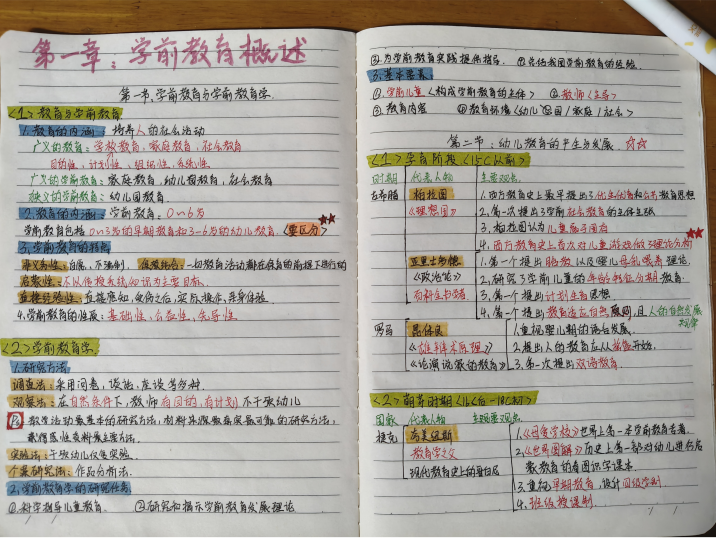 第一章：学前教育概述
第一节、学前教育与学前教育学
<1>教育与学前教育
1.教育的内涵：培养人的社会活动
广义的教育：学校教育，家庭教育，社会教育
目的性，计划性，组织性，系统性
广义的学前教育：家庭教育，幼儿园教育，社会教育
狭义的学前教育：幼儿园教育
2.教育的内涵：学前教育：0~6岁
学前教育包括0~3岁的早期教育和3-6岁的幼儿教育《要区分》
3.学前教育的特点
非义务性：自愿，不强制，保教结合：一切教育活动都在保育的前提下进行的
启蒙性：不以传授系统知识为主要目标
直接经验性：直接感知，实际操作，亲身体验
4.学前教育的性质：基础性、公益性、先导性
<2>学前教育学
1.研究方法
调查法：采用问卷，谈话，座谈等分册
观察法：在自然条件下，教师有目的，有计划 幼儿
教学活动最基本的研究方法，材料
实验法：
个案研究法：作品分析法
2.学前教育学的研究任务
①科学指导儿童教育 ②研究和揭示学前教育发展理论
③为学前教育实践提供指导 ④总结我国学前教育的经验
3.基本要素
①学前儿童《构成学前教育的主体》 ②教师《主导》
③教育内容 ④教育环境《幼儿园/家庭/社会》
第二节：幼儿教育的产生与发展
<1>孕育阶段（15C以前）
时期 代表人物 主要观点
古希腊 柏拉图 1.西方教育史上最早提出了优生优育和公共教育思想
《理想国》 2.第一次提出了学前社会教育的主体主张
3.柏拉图认为儿童属于国有
4.西方教育史上首次对儿童游戏做了理论分析
亚里士多德 1.第一个提出胎教以及婴儿母乳喂养理论
《政治论》 2.研究了学前儿童的年龄特征分期教育
百科全书学者 3.第一个提出计划生育思想
4.第一个提出教育适应自然原则且人的自然发展规律
罗马 昆体良 1.重视婴儿期的语言发展
《雄辩术原理》 2.提出人的教育应从摇篮开始
《论演说家的教育》 3.第一次提出双语教育
<2>萌芽时期（16C后-18C初）
国家 代表人物 主要观点
捷克 夸美纽斯 1.《母育学校》世界上第一本学前教育著者
教育学之父 2.《世界图解》历史上第一部对幼儿进行启蒙教育的看图识字课本
现代教育史上的哥白尼 3.重视早期教育，设计四级学制
4.班级授课制